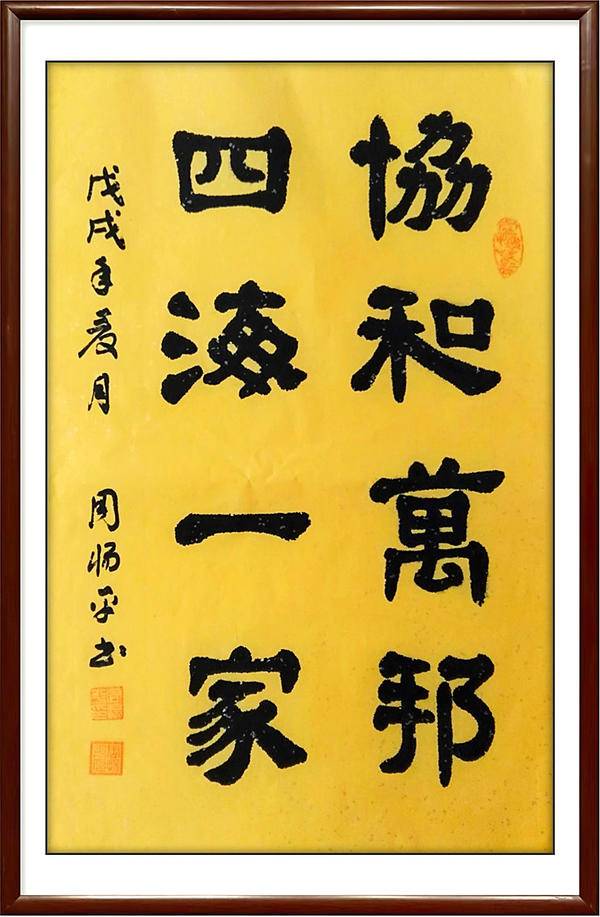 協和萬邦
四海一家
戊戌年夏月
周炀平书